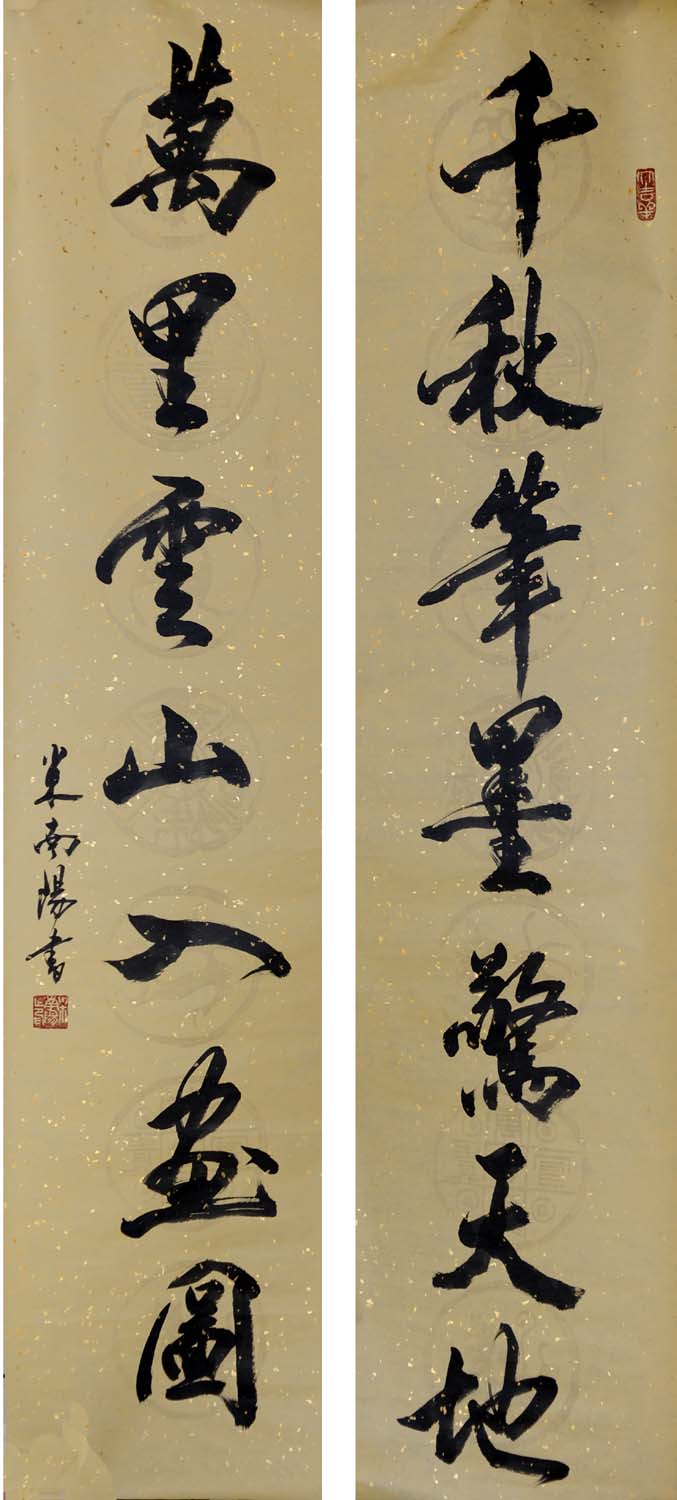 千秋筆墨驚天地
萬里雲山入畫圖
米南陽書